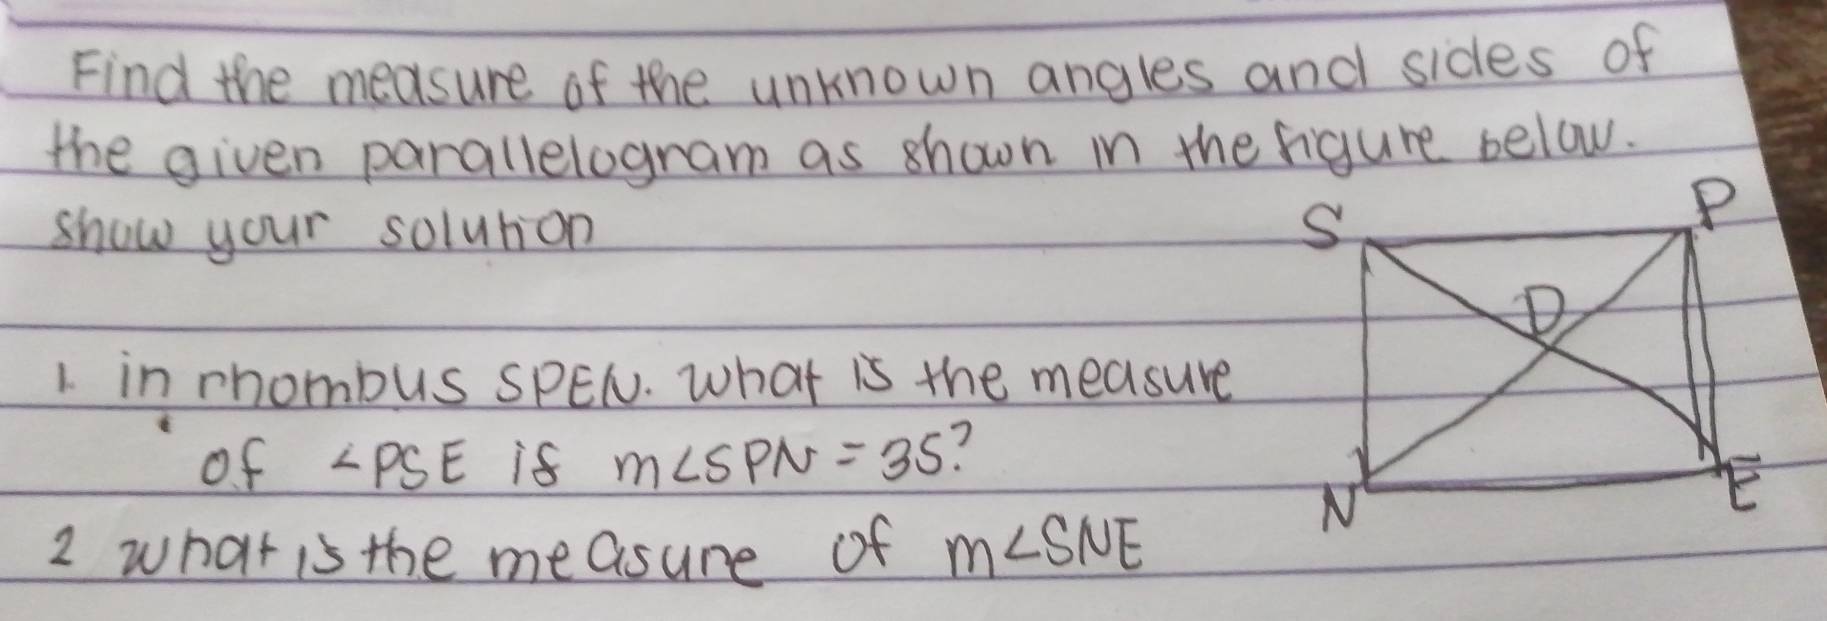 Find the measure of the unknown angles and sides of
the given parallelogram as shown in the figure below.
show your solution
S
P
D
1. in rhombus SPEN. what is the measure
of ∠PSE is m∠SPN = 35?
N
E
2 what is the measure of m∠SNE